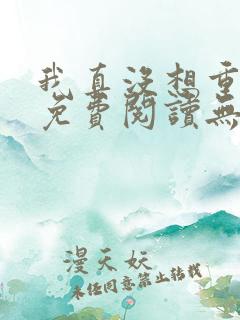 我真沒想重
免費閱讀無
漫天妖
未經同意禁止轉載